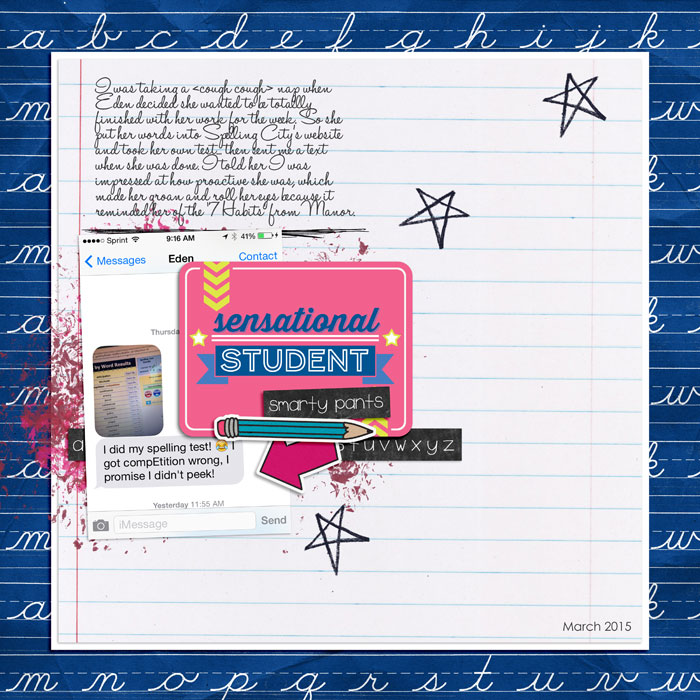 a b c d e f g h i j k
I was taking a <cough cough> nap when
Eden decided she wanted to be totallly
finished with her work for the week. So she
put her words into Spelling City's website
and took her own test, then sent me a text
when she was done. I told her I was
impressed at how proactive she was, which
made her groan and roll her eyes because it
reminded her of the "7 Habits" from Manor.
Sprint 9:16 AM 41%
Messages Eden Contact
Thursda
by Word Results
sensational
STUDENT
smarty pants
I did my spelling test! 😂 I
got compEtition wrong, I
promise I didn't peek!
a t u v w x y z
Yesterday 11:55 AM
iMessage Send
March 2015
m n o p q r s t u v w